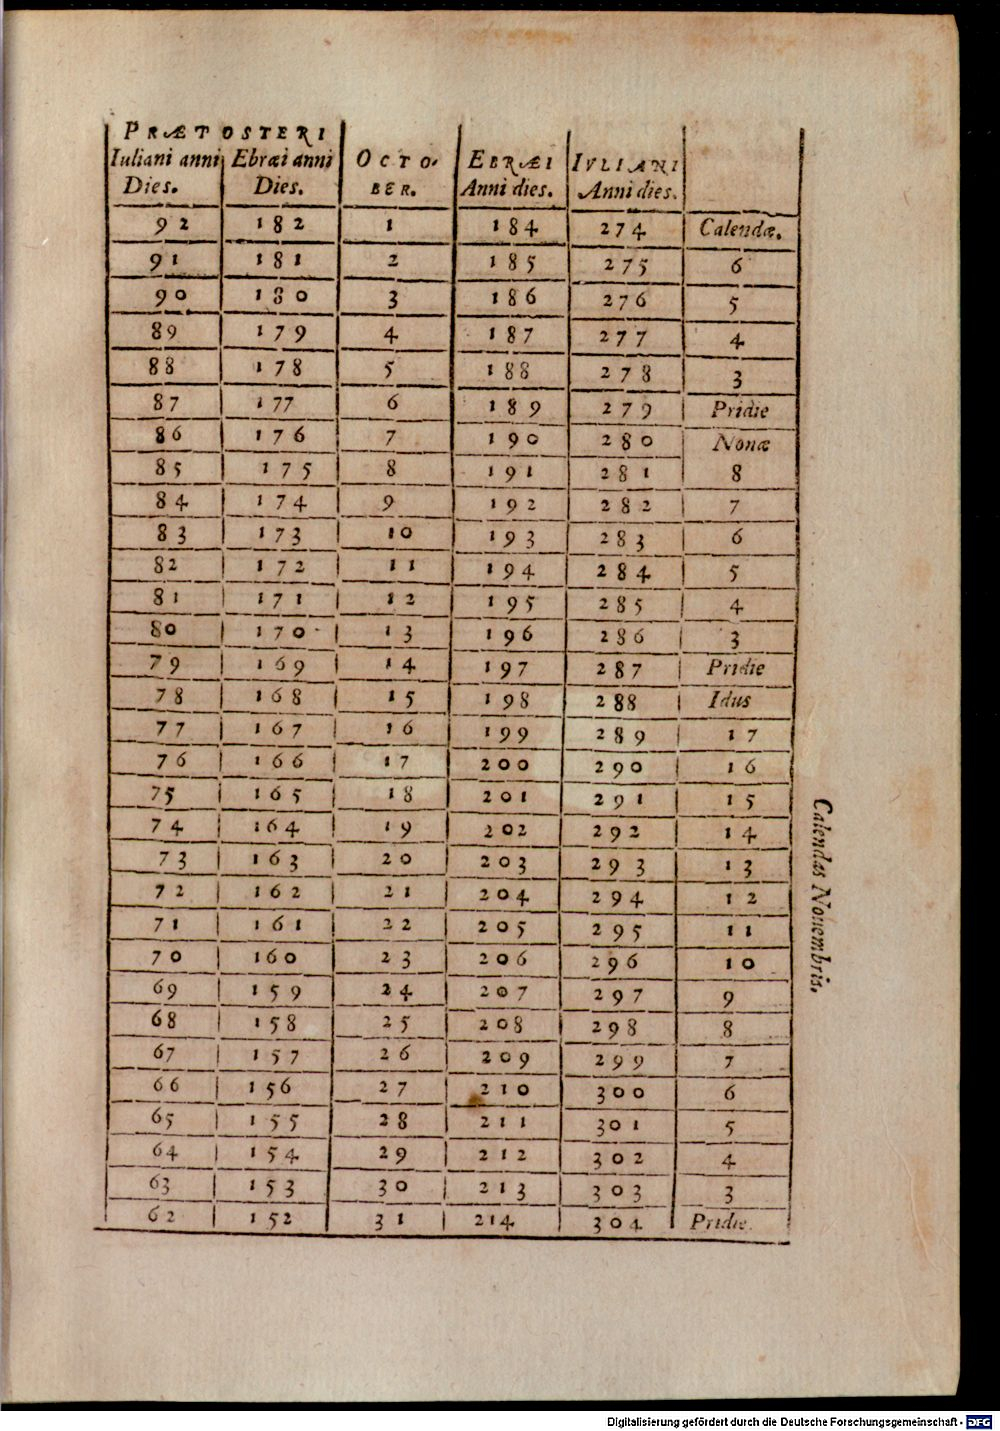 PRÆPOSTERI
Iuliani anni Ebræi anni OCTO- EBRÆI IVLIANI
Dies. Dies. BER. Anni dies. Anni dies.
92 182 1 184 274 Calendæ.
91 181 2 185 275 6
90 180 3 186 276 5
89 179 4 187 277 4
88 178 5 188 278 3
87 177 6 189 279 Pridie
86 176 7 190 280 Nonæ
85 175 8 191 281 8
84 174 9 192 282 7
83 173 10 193 283 6
82 172 11 194 284 5
81 171 12 195 285 4
80 170 13 196 286 3
79 169 14 197 287 Pridie
78 168 15 198 288 Idus
77 167 16 199 289 17
76 166 17 200 290 16
75 165 18 201 291 15
74 164 19 202 292 14
73 163 20 203 293 13
72 162 21 204 294 12
71 161 22 205 295 11
70 160 23 206 296 10
69 159 24 207 297 9
68 158 25 208 298 8
67 157 26 209 299 7
66 156 27 210 300 6
65 155 28 211 301 5
64 154 29 212 302 4
63 153 30 213 303 3
62 152 31 214 304 Pridie.
Calendas Nouembris.
Digitalisierung gefördert durch die Deutsche Forschungsgemeinschaft - DFG